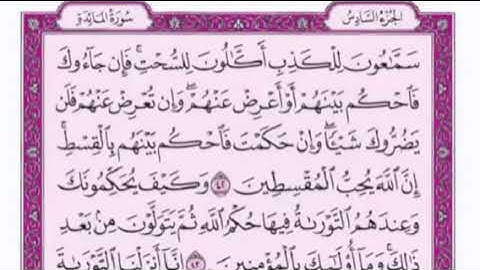 الجزء السادس
سورة المائدة
سَمَّٰعُونَ لِلْكَذِبِ أَكَّٰلُونَ لِلسُّحْتِ ۚ فَإِن جَآءُوكَ
فَٱحْكُم بَيْنَهُمْ أَوْ أَعْرِضْ عَنْهُمْ ۖ وَإِن تُعْرِضْ عَنْهُمْ فَلَن
يَضُرُّوكَ شَيْـًٔا ۖ وَإِنْ حَكَمْتَ فَٱحْكُم بَيْنَهُم بِٱلْقِسْطِ ۚ
إِنَّ ٱللَّهَ يُحِبُّ ٱلْمُقْسِطِينَ ٤٢ وَكَيْفَ يُحَكِّمُونَكَ
وَعِندَهُمُ ٱلتَّوْرَىٰةُ فِيهَا حُكْمُ ٱللَّهِ ثُمَّ يَتَوَلَّوْنَ مِنۢ بَعْدِ
ذَٰلِكَ ۚ وَمَآ أُو۟لَٰٓئِكَ بِٱلْمُؤْمِنِينَ ٤٣ إِنَّآ أَنزَلْنَا ٱلتَّوْرَىٰةَ